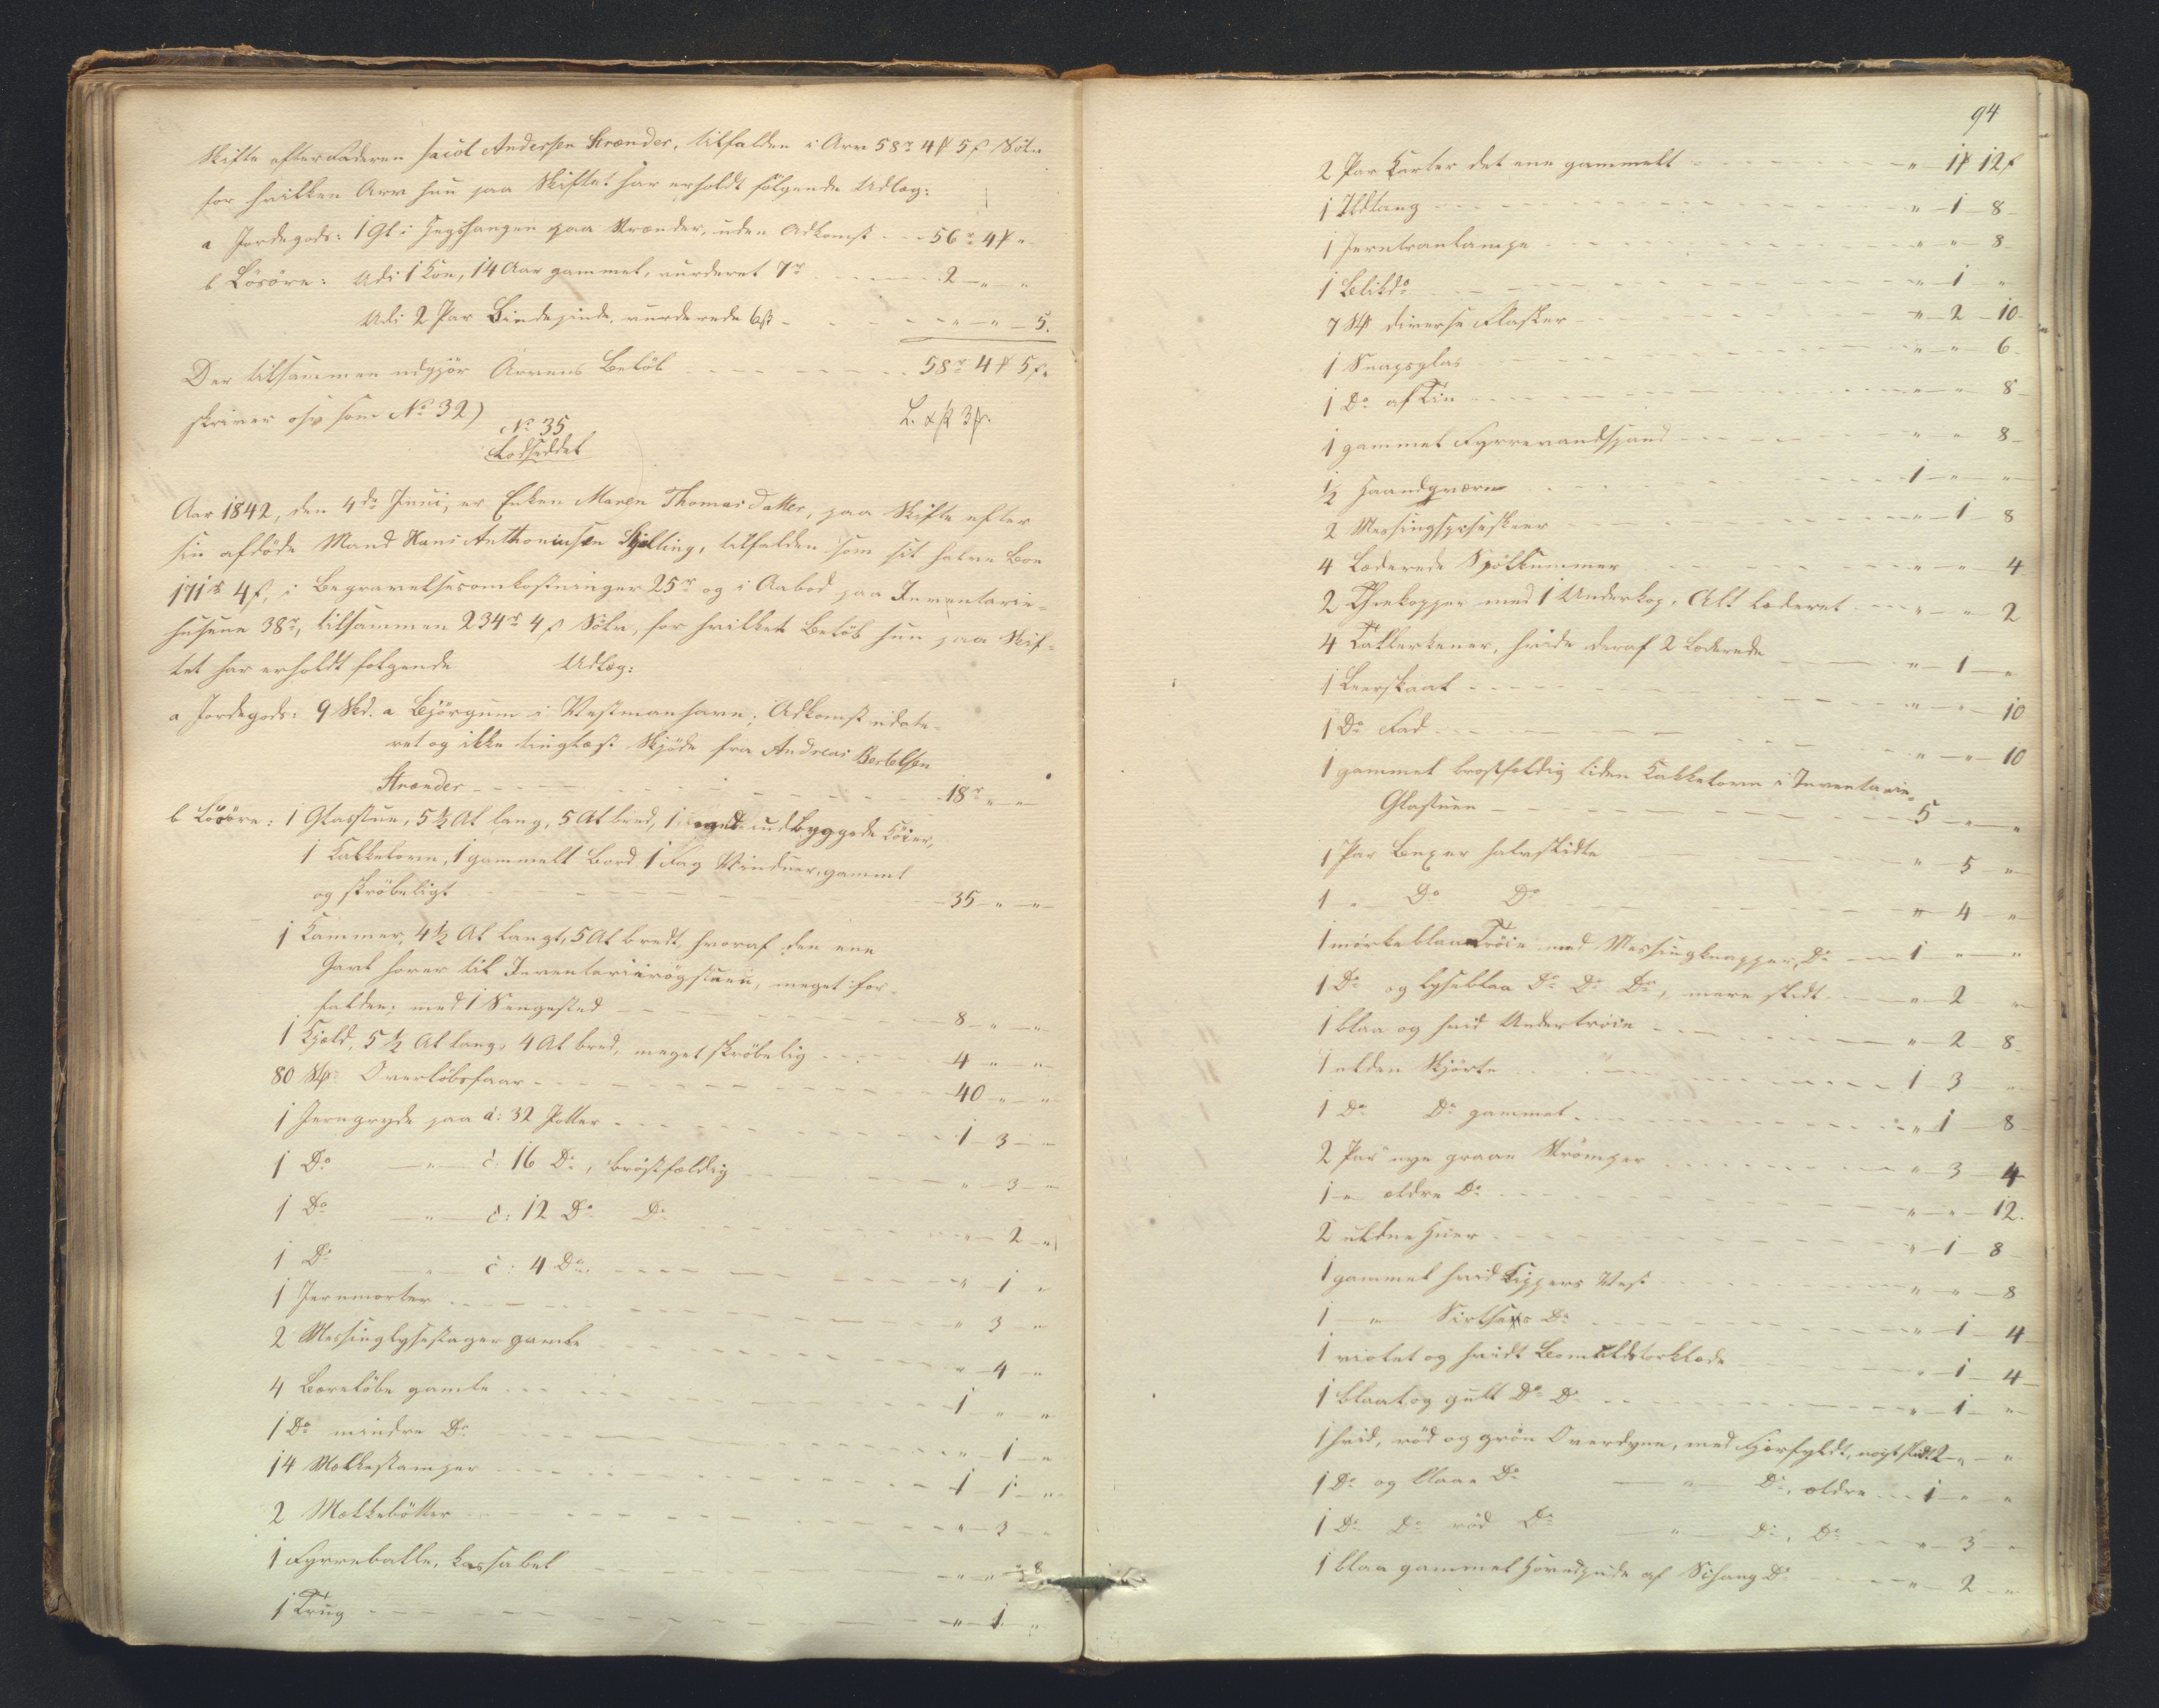 Skifte efter Faderen Jacob Andersen Strænder, tilfalden i Arv 58 rd 4 # 5 s Sölv
for hvilken Arv hun paa Skiftet har erholdt fölgende Udlæg:
a Jordegods: 1 Gl i Hegshangen paa Strænder, uden Adkomst - - 56 rd 4 # "
b Lösöre: Udi 1 Koe, 14 Aar gammel, vurderet 7 rd - - - 2 - " - "
Udi 2 Par Bindepinde, vurderede 6 s - - - " - " - 5.
Der tilsammen udgjör Arvens Belöb - - - 58 rd 4 # 5 s.
skriver osv som No 32)
No 35
Lodseddel
Aar 1842, den 4de Juni, er Enken Maren Thomasdatter, paa Skifte efter
sin afdöde Mand Hans Anthoniusen Skjelling, tilfalden som sit halve Boe
171 rd 4 s, i Begravelsesomkostninger 25 rd og i Aabod paa Inventarie-
husene 38 rd, tilsammen 234 rd 4 s Sölv, for hvilket Belöb hun paa Skif-
tet har erholdt folgende Udlæg:
a Jordegods: 9 Skd. a Björgum i Vestmanhavn; Adkomst udate-
ret og ikke tinglæst Skjöde fra Andreas Bertelsen
Strænder - - - 18 rd " - "
b Lösöre: 1 Glasstue, 5 ½ Al lang, 5 Al bred, 1 udbyggede Köier,
1 Kakkelovn, 1 gammelt Bord 1 Fag Vinduer, gammel
og skröbeligt - - - 35 - " - "
1 Kammer, 4 ½ Al langt, 5 Al bredt hvoraf den ene
Gavl hörer til Inventariirögstuen, meget for-
falden; med 1 Sengested - - - 8 - " - "
1 Hjeld, 5 ½ Al lang, 4 Al bred, meget skröbelig - - - 4 - " - "
80 Stk Overlöbsfaar - - - 40 - " - "
1 Jerngryde paa c: 32 Potter - - - 1 - 3 - "
1 Do - " - c: 16 Do, bröstfældig - - - " - 3 - "
1 Do - " - c: 12 Do Do - - - " - 2 - "
1 Do - " - c: 4 Do - - - " - 1 - "
1 Jernmorter - - - " - 3 - "
2 Messinglysestager gamle - - - " - 4 - "
4 Bærelöbe gamle - - - 1 - " - "
1 Do mindre Do - - - " - 1 - "
14 Mælkestamper - - - 1 - 1 - "
2 Mælkebötter - - - " - 3 - "
1 Fyrreballe, kassabel - - - " - " - 8
1 Trug - - - " - 1 - "
94
2 Par Karter det ene gammelt - - - " - 1 # 12 s
1 Ildtang - - - " - 1 - 8
1 Jerntranlampe - - - " - " - 8
1 Blikdo - - - " - 1 - "
7 Stk diverse Flasker - - - " - 2 - 10
1 Snapsglas - - - " - " - 6
1 Do af Tin - - - " - " - 8
1 gammel Fyrrevandspand - - - " - " - 8
½ Haandqværn - - - 1 - " - "
2 Messingspiseskeer - - - " - 1 - 8
4 Læderede Spölkummer - - - " - " - 4
2 Theekopper med 1 Underkop. Alt læderet - - - " - " - 2
4 Tallerkener, hvide deraf 2 læderede - - - " - 1 - "
1 Leerskaal - - - " - " - 10
1 Do Fad - - - " - " - 10
1 gammel bröstfældig liden Kakkelovn i Inventarie-
Glastuen - - - 5 - " - "
1 Par Buxer halvslidte - - - " - 5 - "
1 " Do Do - - - " - 4 - "
1 mörkeblaa Tröie med Messingknapper, Do - - - 1 - " - "
1 Do og lyseblaa Do Do Do, mere slidt - - - " - 2 - "
1 blaa og hvid Undertröie - - - " - 2 - 8
1 ulden Skjörte - - - 1 - 3 - "
1 Do Do gammel - - - " - 1 - 8
2 Par nye graae Strömper - - - " - 3 - 4
1 " ældre Do - - - " - " - 12.
2 uldne Huer - - - " - 1 - 8
1 gammel hvid Kippers Vest - - - " - " - 8
1 - " - Sirtses Do - - - " - 1 - 4
1 violet og hvidt Bomuldstörklæde - - - " - 1 - 4
1 blaat og gult Do Do - - - " - 1 - "
1 hvid, röd og grön Overdyne, med Fjærfyldt, noget slidt 2 - " - "
1 Do og blaae Do - " - Do, ældre - - - 1 - " - "
1 Do Do röd Do - " - Do, Do - - - " - 3 - "
1 blaa gammel Hovedpude af Do - - - " - 2 - "